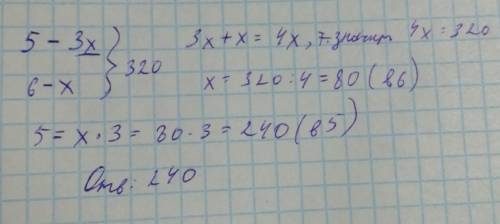 5 - 3x
6 - x } 320
3x + x = 4x, т. значит 4x = 320
x = 320 : 4 = 80 (в6)
5 = x · 3 = 80 · 3 = 240 (в5)
Отв: 240